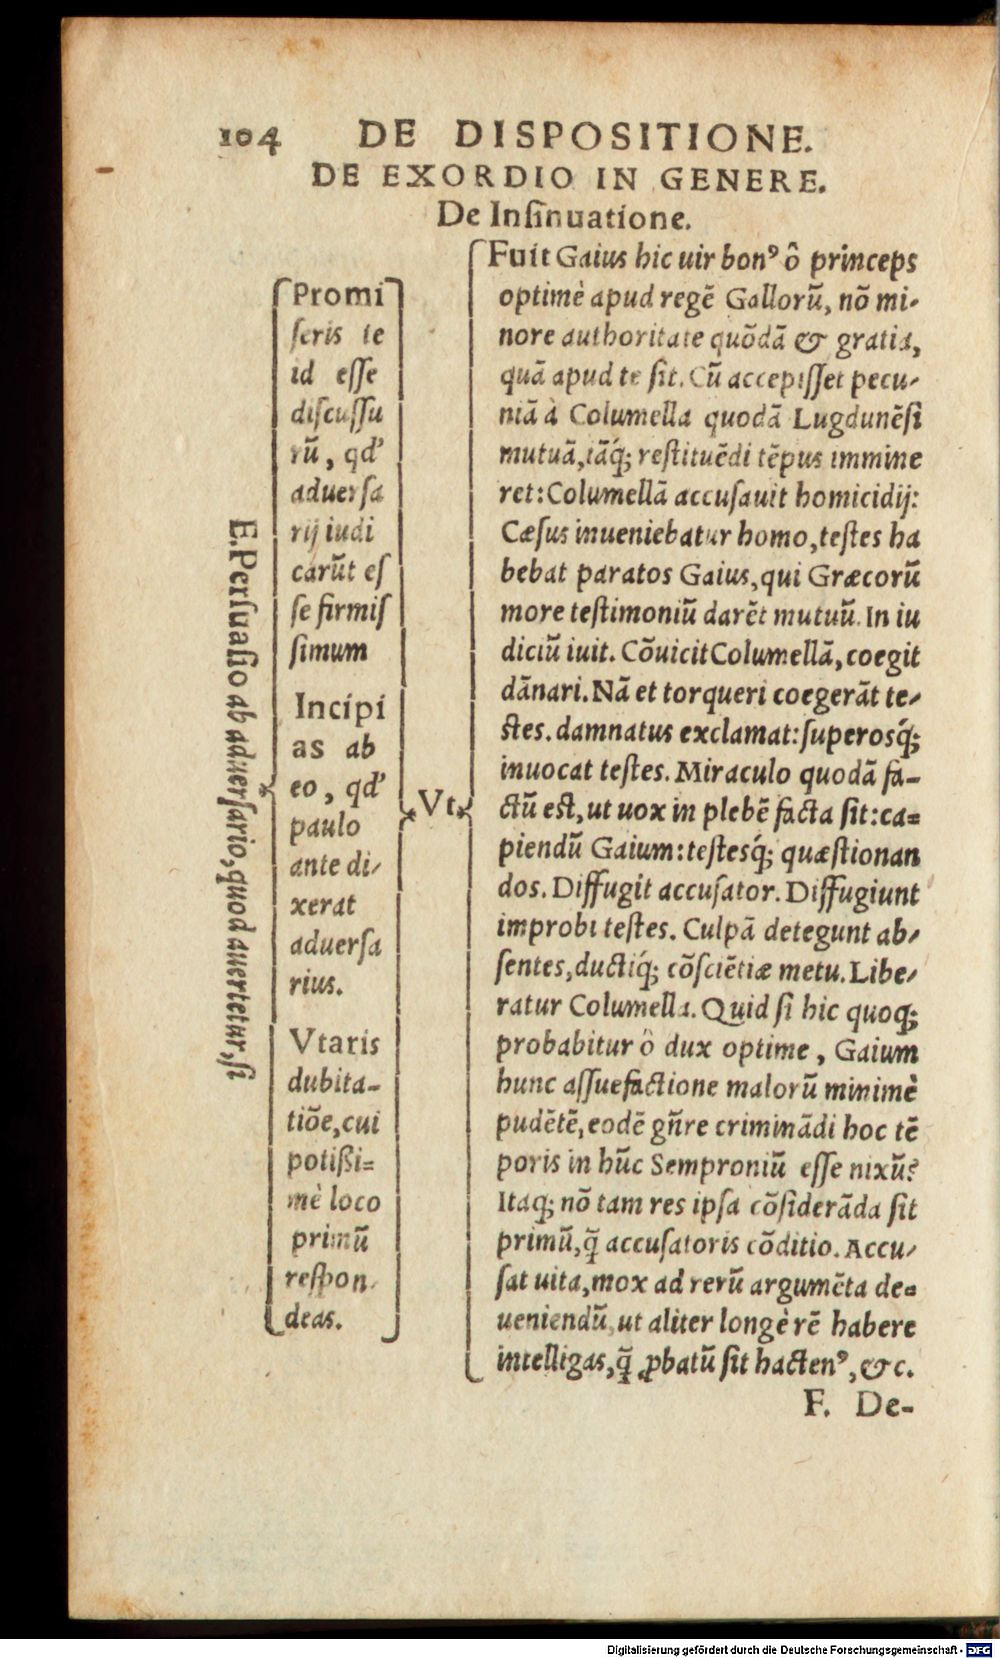 104 DE DISPOSITIONE.
DE EXORDIO IN GENERE.
De Insinuatione.
E. Persuasio ab adversario, quod avertetur, si
Promi
seris te
id esse
discussu
rū, qd'
aduersa
rij iudi
carūt es
se firmis
simum
Incipi
as ab
eo, qd'
paulo
ante di-
xerat
aduersa
rius.
Vtaris
dubita-
tiōe, cui
potißi=
mè loco
primū
respon
deas.
Vt
Fuit Gaius hic uir bonꝰ ô princeps
optimè apud regē Gallorū, nō mi-
nore authoritate quōdā & gratia,
quā apud te sit. Cū accepisset pecu-
niā à Columella quodā Lugdunēsi
mutuā, iāq́; restituēdi tēpus immine
ret: Columellā accusauit homicidij:
Cæsus inueniebatur homo, testes ha
bebat paratos Gaius, qui Græcorū
more testimoniū darēt mutuū. In iu
diciū iuit. Cōuicit Columellā, coegit
dānari. Nā et torqueri coegerāt te-
stes. damnatus exclamat: superosq́;
inuocat testes. Miraculo quodā fa-
ctū est, ut uox in plebē facta sit: ca=
piendū Gaium: testesq́; quæstionan
dos. Diffugit accusator. Diffugiunt
improbi testes. Culpā detegunt ab-
sentes, ductiq́; cōsciētiæ metu. Libe-
ratur Columella. Quid si hic quoq;
probabitur ô dux optime, Gaium
hunc assuefactione malorū minimè
pudētē, eodē gñre criminādi hoc tē
poris in hūc Semproniū esse nixū?
Itaq; nō tam res ipsa cōsiderāda sit
primū, q̄ accusatoris cōditio. Accu-
sat uita, mox ad rerū argumēta de=
ueniendū, ut aliter longè rē habere
intelligas, q̄ ꝓbatū sit hactenꝰ, &c.
F. De-
Digitalisierung gefördert durch die Deutsche Forschungsgemeinschaft - DFG